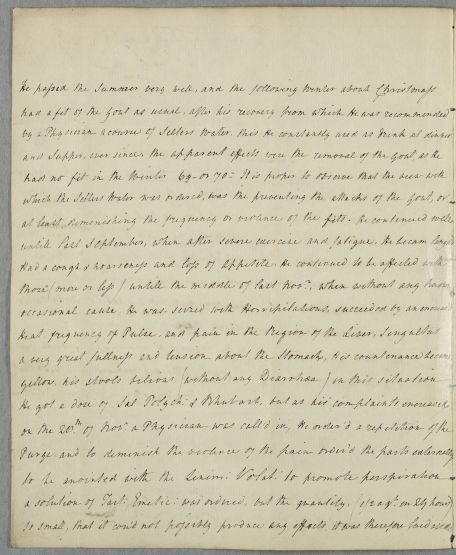 He passed the Summer very well, and the following Winter about Christmass
had a fit of the Gout as usual, after his recovery from which He was recommended
by a Physician a course of Selters Water, this He constantly used as drink at dinner
and Supper, ever since, the apparent effects were the removal of the Gout, as He
had no fit in the Winter 69 or 70 = It is proper to observe that the view with
which the Selters Water was ordered, was the preventing the attacks of the Gout, or
at least, diminishing the frequency or violence of the fitts. He continued well
untill last September, when after severe exercise and fatigue, He
Had a cough & hoarseness and loss of appetite. He continued to be affected with
these (more or less) untill the middle of last Novr., when without any known
occasional cause, He was seized with Horripilations, succeeded by an
Heat frequency of Pulse, and pain in the Region of the Liver, Singultus
a very great fullness and tension about the Stomach, His countenance became
yellow, his stools bilious (without any Diarrhœa) in this situation
He got a dose of Sal Polych: & Rhubarb, but as his complaints encreased
on the 20th of Novr. a Physician was call'd in, He order'd a repetition of the
Purge and to diminish the violence of the pain order'd the parts externally
to be anointed with the Linim: Volat: to promote perspiration
a solution of Tart: Emetic: was ordered, but the quantity, (1/2 a gr. hour)
so small, that it could not possibly produce any effects, it was therefore laid aside